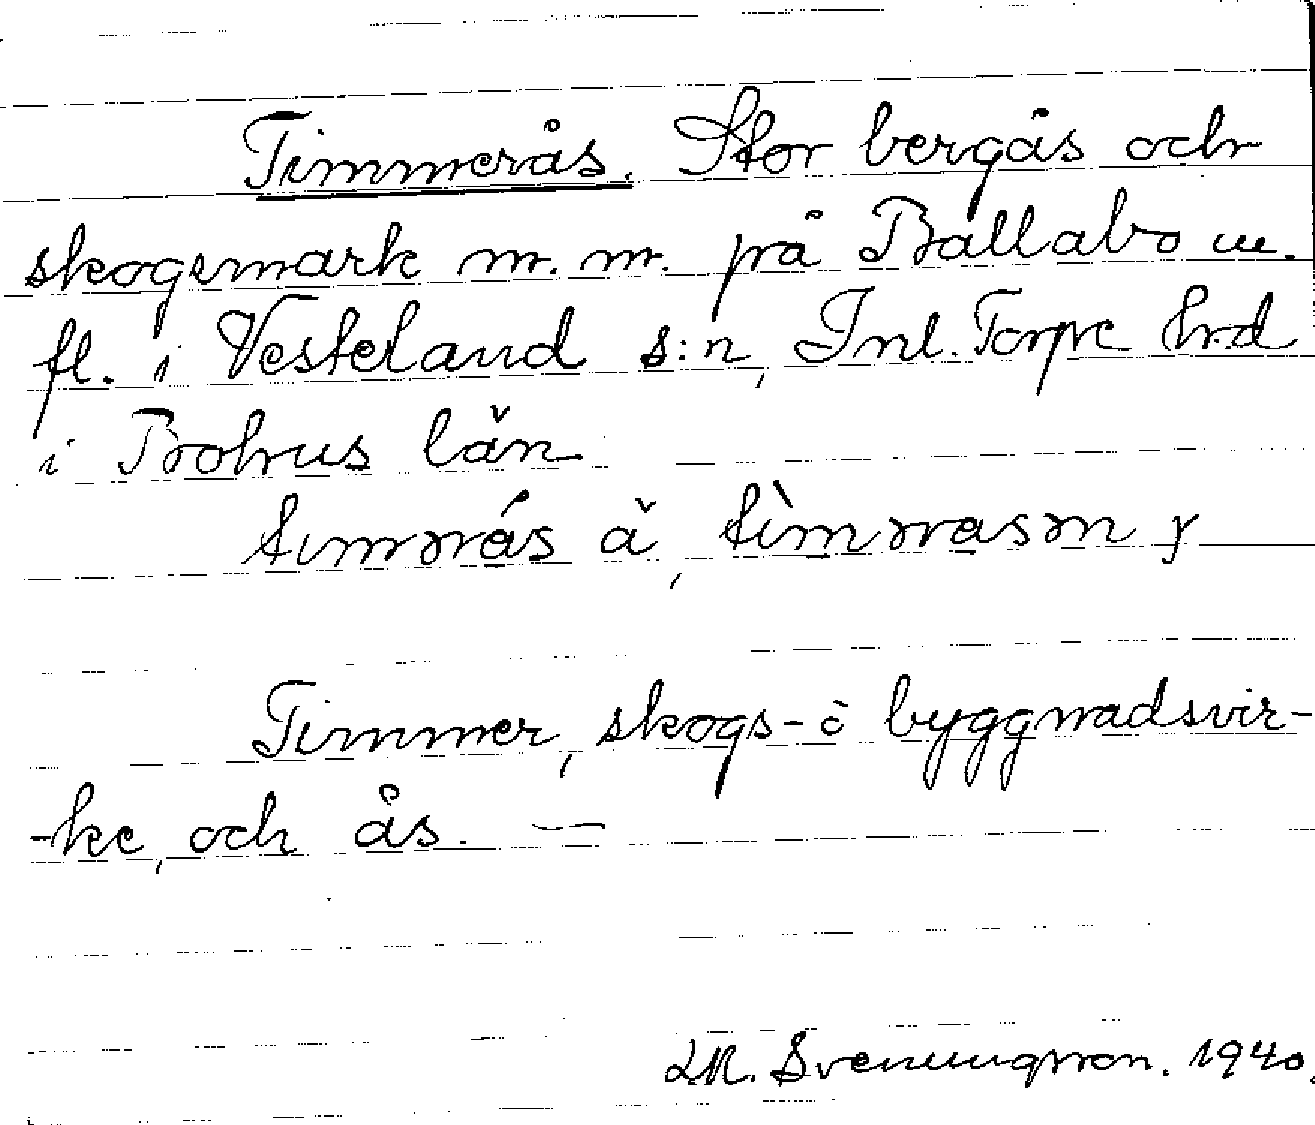 Timmerås. Stor bergås och
skogsmark m. m. på Ballabo m.
fl. i Vesterland s:n, Inl. Torpe hrd
i Bohus län.
ă,
Timmer, skogs- o byggnadsvir-
-ke, och ås. —
Svenungsson. 1940.